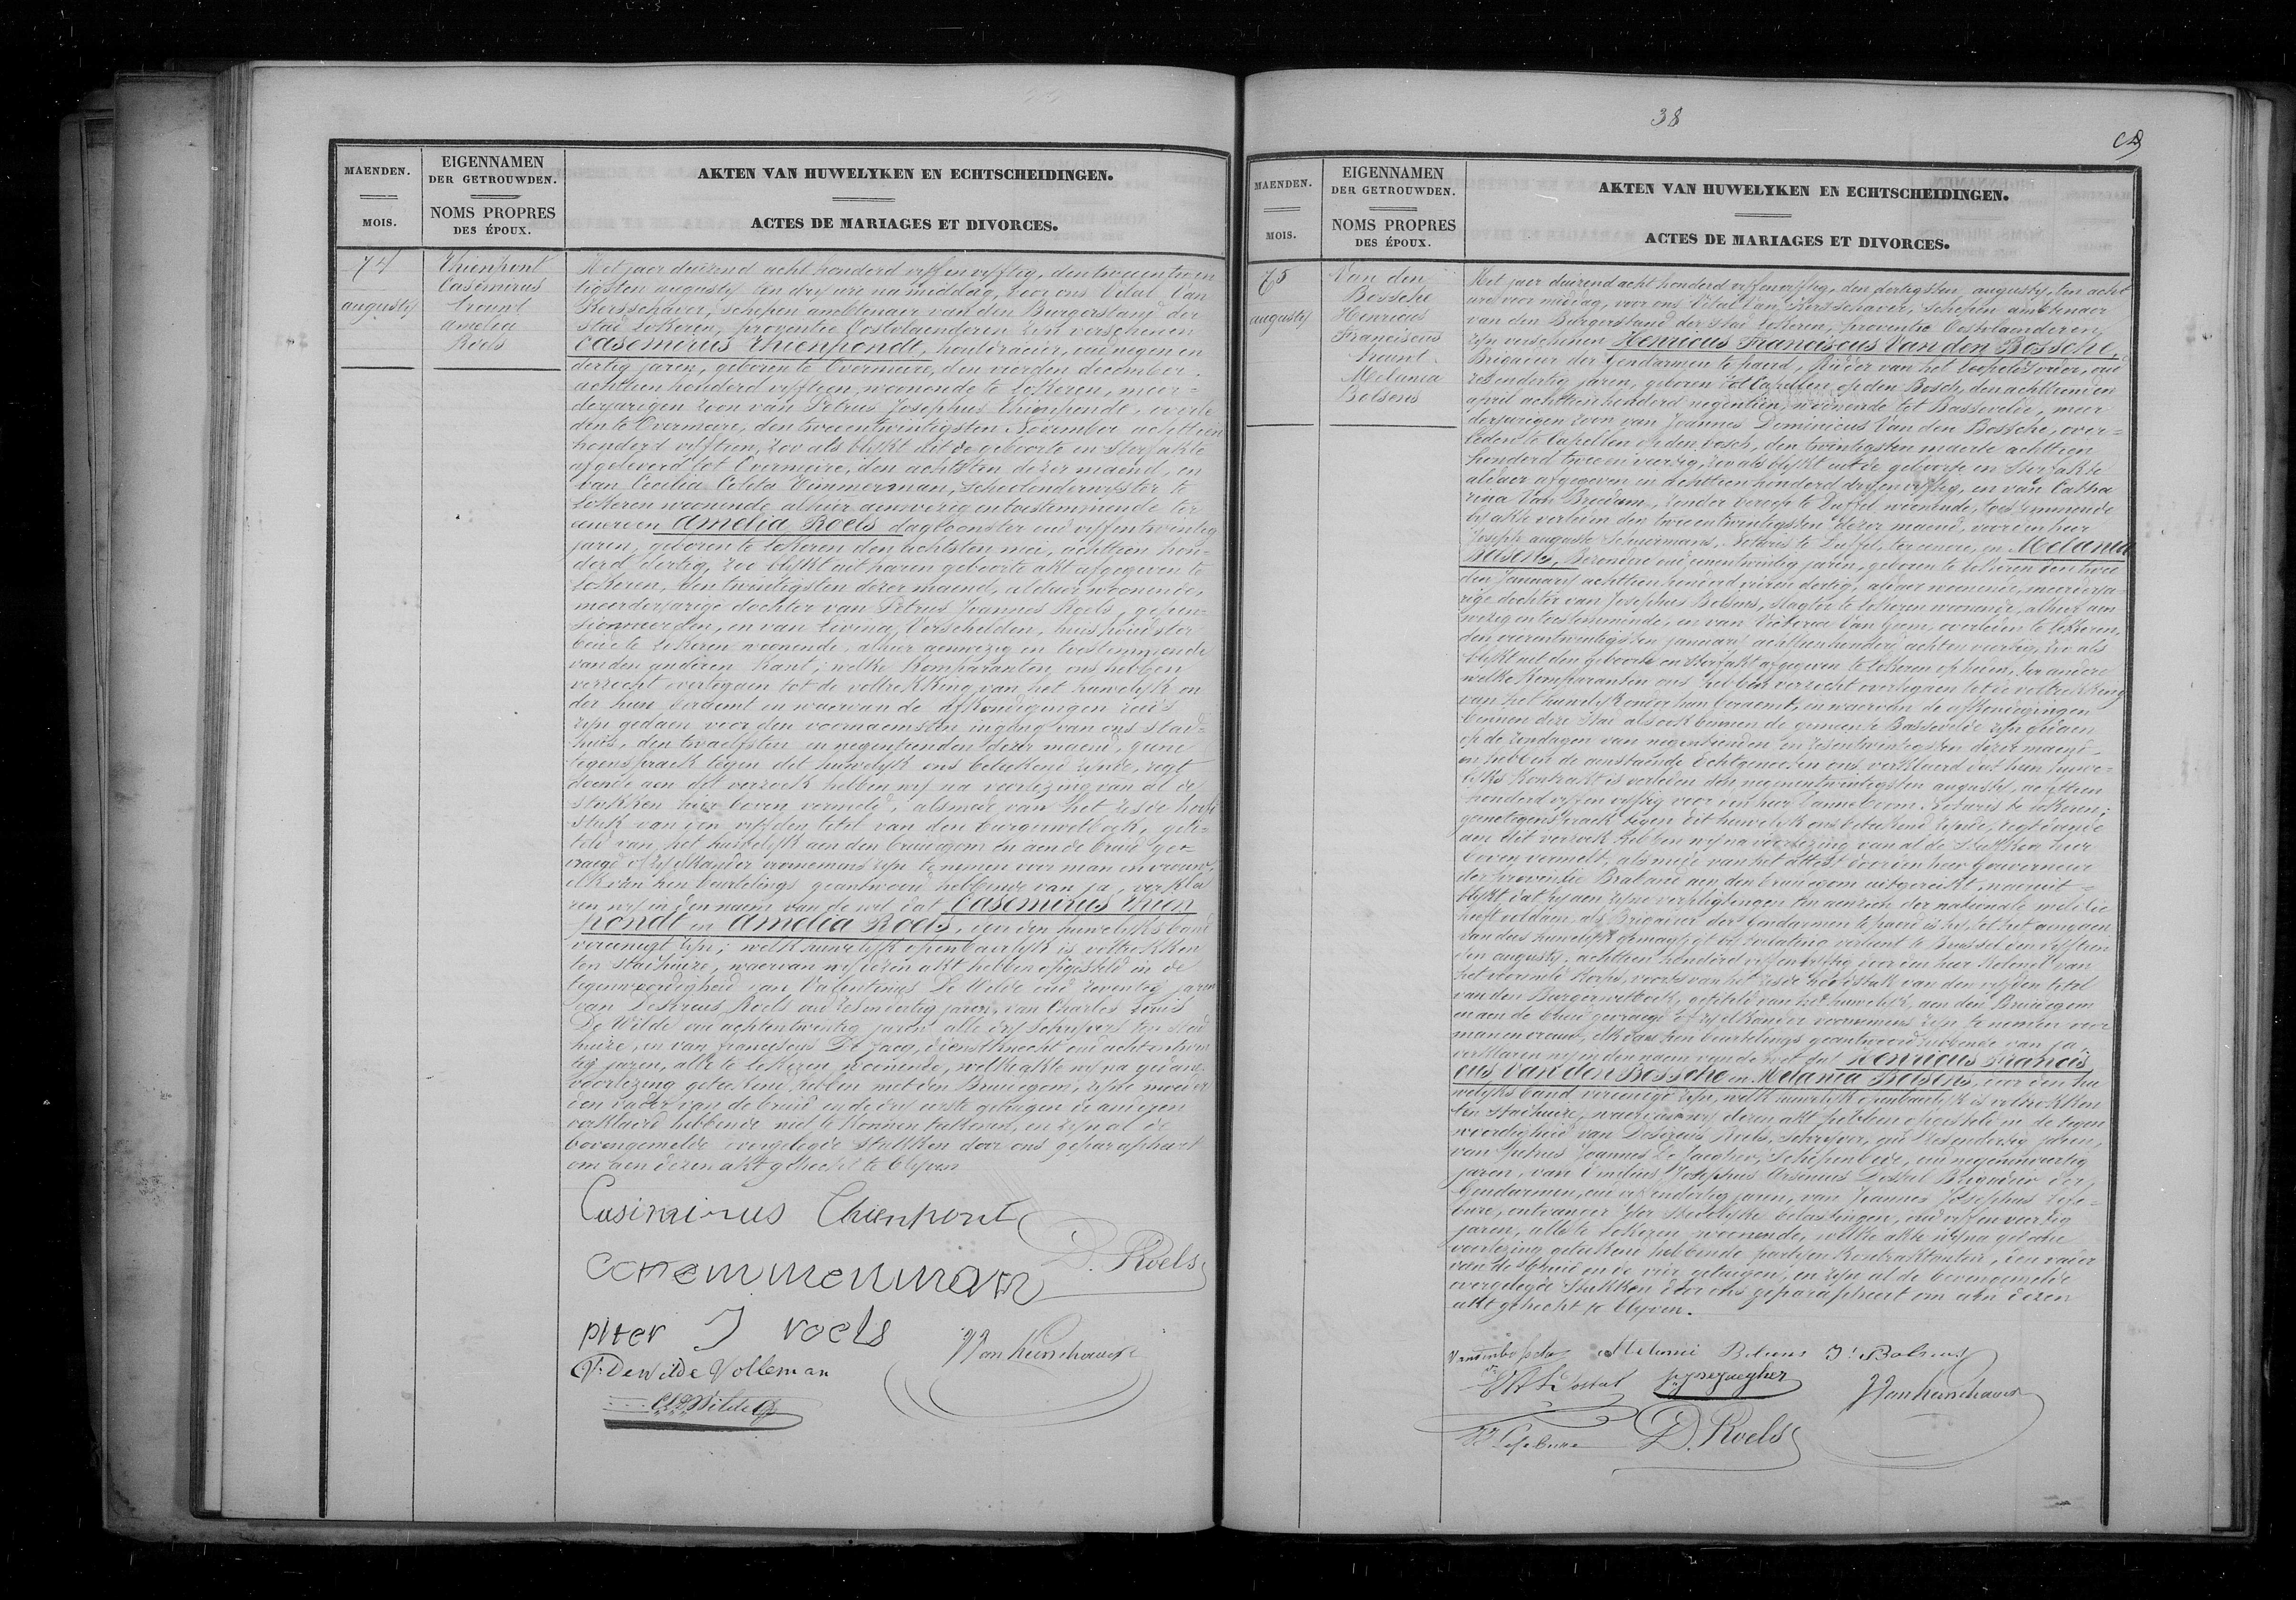 38
MAENDEN.
MOIS.
EIGENNAMEN
DER GETROUWDEN.
NOMS PROPRES
DES ÉPOUX.
AKTEN VAN HUWELYKEN EN ECHTSCHEIDINGEN.
ACTES DE MARIAGES ET DIVORCES.
74
augusty
Thienpont
Casimirus
trouwt
amelia
Roels
Het jaer duizend acht honderd vyf en vyftig, den tweentwin
tigsten augusty ten dry ure na middag, voor ons Vital Van
Kersschaver, schepen amblenaer van den Burgerstand der
stad Lokeren, proventie Oostvlaenderen zyn verschenen
Casemirus Thienpondt, houtdraeier, oud negen en
dertig jaren, geboren te Overmeire, den vierden december
achttien honderd vyftien, woonende te Lokeren, meer=
derjarigen zoon van Petrus Josephus Thienpondt, overle
den te Overmeire, den tweentwintigsten November achttien
honderd vyftien, zoo als blykt uit de geboorte en sterfakte
afgeleverd tot Overmeire, den achtsten dezer maend, en
van Cecilia Coleta Timmerman, schoolonderwyster, te
Lokeren woonende, alhier aenwezig en toestemmende ter
eenre en Amelia Roels dagloonster oud vyfentwintig
jaren, geboren te Lokeren den achtsten mei, achttien hon-
derd dertig, zoo blykt uit haren geboorte akt afgegeven te
Lokeren, den twintigsten dezer maend, aldaer woonende,
meerderjarige dochter van Petrus Joannes Roels, gepen-
sionneerden, en van Livina Verschelden, huishoudster
beide te Lokeren woonende, alhier aenwezig en toestemmende
van den anderen kant; welke komparanten ons hebben
verzocht overtegaen tot de voltrekking van het huwelyk on
der hun beraemt en waervan de afkondigingen reeds
zyn gedaen voor den voornaemsten ingang van ons stad=
huis, den twaelfsten en negentienden dezer maend, geene
tegenspraek tegen dit huwelyk ons bekend zynde, regt
doende aen dit verzoek hebben wy na voorlezing van al de
stukken hier boven vermeld, alsmede van het zesde hoofd
stuk van den vyfden titel van den burgerwetboek, geti=
teld van het huwelyk aen den bruidegom en aen de bruid ge=
vraegd of zy elkander voornemens zyn te nemen voor man en vrouw,
elk van hen beurtelings geantwoord hebbende van ja, verkla
ren wy in den naem van de wet dat Casemirus Thien
pondt en Amelia Roels, door den huwelyksband
vereenigt zyn; welk huwelyk openbaerlyk is voltrokken
ten stadhuize, waervan wy dezen akt hebben opgesteld in de
tegenwoordigheid van Valentinus De Wilde oud zeventig jaren
van Desireus Roels oud zesendertig jaren, van Charles Louis
De Wilde oud achtentwintig jaren, alle dry schryvers ten stad
huize, en van franciscus De Jaeg, dienstknecht oud achtentwin
tig jaren, alle te Lokeren woonende, welke akte wy na gedane
voorlezing geteekend hebben met den Bruidegom, zyne moeder
den vader van de bruid en de dry eerste getuigen de anderen
verklaerd hebbende niet te konnen teekenen, en zyn al de
bovengemelde overgelegde stukken door ons geparapheert
om aen dezen akt gehecht te blyven
Casimirus Thienpont
D. Roels
piter J roels
V. De Wilde Volleman
Van Kersschaver
MAENDEN.
MOIS.
EIGENNAMEN
DER GETROUWDEN.
NOMS PROPRES
DES ÉPOUX.
AKTEN VAN HUWELYKEN EN ECHTSCHEIDINGEN.
ACTES DE MARIAGES ET DIVORCES.
75
augusty
Van den
Bossche
Henricus
Franciscus
trouwt
Melania
Bolsens
Het jaer duizend acht honderd vyfenvyftig, den dertigsten augusty, ten acht
ure voor middag, voor ons Vital Van Kersschaver, schepen amblenaer
van den Burgerstand der stad Lokeren, proventie Oostvlaenderen
zyn verschenen Henricus Franciscus Van den Bossche,
Brigadier der Gendarmen te paerd, Ridder van het Leopolds order, oud
zesendertig jaren, geboren tot Capellen op den Bosch, den achttienden
april achttien honderd negentien, woonende tot Bassevelde, meer
derjarigen zoon van Joannes Dominicus Van den Bossche, over=
leden te Capellen op den bosch, den twintigsten maerte achttien
honderd twee en veertig, zoo als blykt uit de geboorte en sterfakte
aldaer afgegeven in achttien honderd dryenvyftig, en van Catha
rina Van Bredam, zonder beroep te Duffel woonende, toestemmende
by akte verleden den tweentwintigsten dezer maend, voor den heer
Joseph auguste Scheurmans, Notaris te Duffel, ter eenre, en Melania
Bolsens, Byzondere oud eenentwintig jaren, geboren te Lokeren den twee
den January achttien honderd vierendertig, aldaer woonende, meerderja
rige dochter van Josephus Bolsens, slagter te Lokeren woonende, alhier aen
wezig en toestemmende, en van Victoria Van Gyem, overleden te Lokeren,
den vierentwintigsten january achttien honderd achtenveertig, zoo als
blykt uit den geboorte en sterfakt afgegeven te Lokeren op heden, ter andere
welke komparanten ons hebben verzocht overtegaen tot de voltrekking
van het huwelyk onder hun beraemt, en waervan de afkondigingen
binnen deze stad als ook binnen de gemeente Bassevelde zyn gedaen
op de zondagen van negentienden en zesentwintigsten dezer maend,
en hebben de aenstaende echtgenooten ons verklaerd dat hun huwe=
lyks kontrakt is verleden den negenentwintigsten augusty, achttien
honderd vyfenvyftig voor den heer Tanneboom Notaris te Lokeren;
geene tegenspraek tegen dit huwelyk ons bekend zynde, regtdoende
aen dit verzoek hebben wy na voorlezing van al de stukken hier
boven vermelt, alsmede van het attest door den heer Gouverneur
der provintie Braband aen den bruidegom uitgereikt, waeruit=
blykt dat hy aen zyne verpligtingen ten aenzien der nationale melitie
heeft voldaen als Brigadier der Gendarmen te paerd is hy, tot het aengaen
van dees huwelyk gemagtigt by toelating verleent te Brussel den vyftien
den augusty, achttien honderd vyfenvyftig door den heer Kolonel van
het voormeld Korps, voorts van het zesde hoofdstuk van den vyfden titel
van den Burgerwetboek, getiteld van het huwelyk, aen den Bruidegom
en aen de bruid gevraegd of zy elkander voornemens zyn te nemen voor
man en vrouw, elk van hen beurtelings geantwoord hebbende van ja,
verklaren wy in den naem van de wet dat Henricus Francis
cus Van den Bossche en Melania Bolsens, door den hu
welyks band vereenigd zyn, welk huwelyk openbaerlyk is voltrokken
ten stadhuize, waervan wy dezen akt hebben opgesteld in de tegen
woordigheid van Desireus Roels, schryver, oud zesendertig jaren,
van Petrus Joannes De Jaegher, schepenbode, oud negenenveertig
jaren, van Emelius Josephus Arsenius Dostal Brigadier der
Gendarmen, oud vyfendertig jaren, van Joannes Josephus Lefe=
bure, ontvanger der Stedelyke belastingen, oud vyfenveertig
jaren, alle te Lokeren woonende, welke akte wy na gedane
voorlezing geteekend hebbende partyen kontraktanten, den vader
van de bruid en de vier getuigen, en zyn al de bovengemelde
overgelegde stukken door ons geparapheert om aen dezen
akt gehecht te blyven.
Vandenbossche Melanie Bolsens J. Bolsens
Van Kersschaver
Lefebure D. Roels